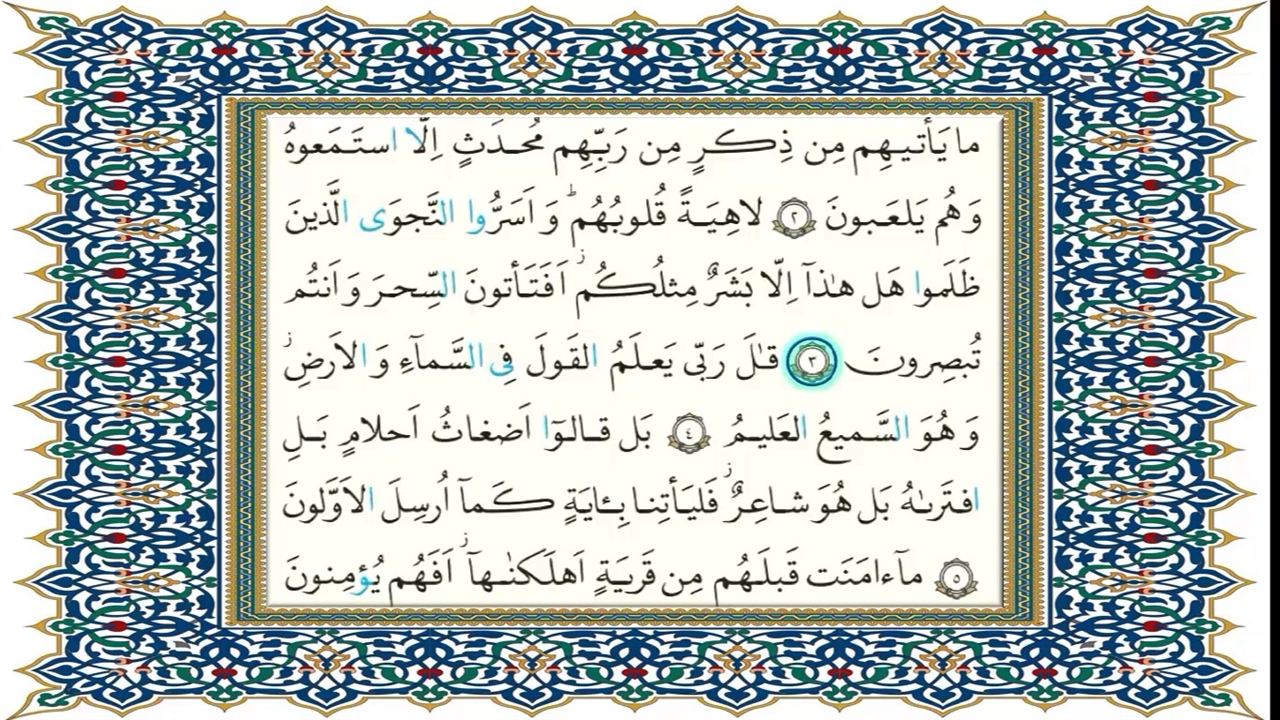 ما يَأتيهِم مِن ذِكرٍ مِن رَبِّهِم مُحدَثٍ اِلَّا استَمَعوهُ
وَ هُم يَلعَبونَ ﴿٢﴾ لاهِيَةً قُلوبُهُم ۗ وَ اَسَرُّوا النَّجوَى الَّذينَ
ظَلَموا هَل هٰذآ اِلّا بَشَرٌ مِثلُكُم ۖ اَفَتَأتونَ السِّحرَ وَ اَنتُم
تُبصِرونَ ﴿٣﴾ قٰلَ رَبّى يَعلَمُ القَولَ فِى السَّمآءِ وَ الاَرضِ ۖ
وَ هُوَ السَّميعُ العَليمُ ﴿٤﴾ بَل قالوٓا اَضغاثُ اَحلامٍ بَلِ
افتَرىٰهُ بَل هُوَ شاعِرٌ ۖ فَليَأتِنا بِـٔايَةٍ كَمآ اُرسِلَ الاَوَّلونَ
﴿٥﴾ مآ ءامَنَت قَبلَهُم مِن قَريَةٍ اَهلَكنٰهآ ۖ اَفَهُم يُؤمِنونَ